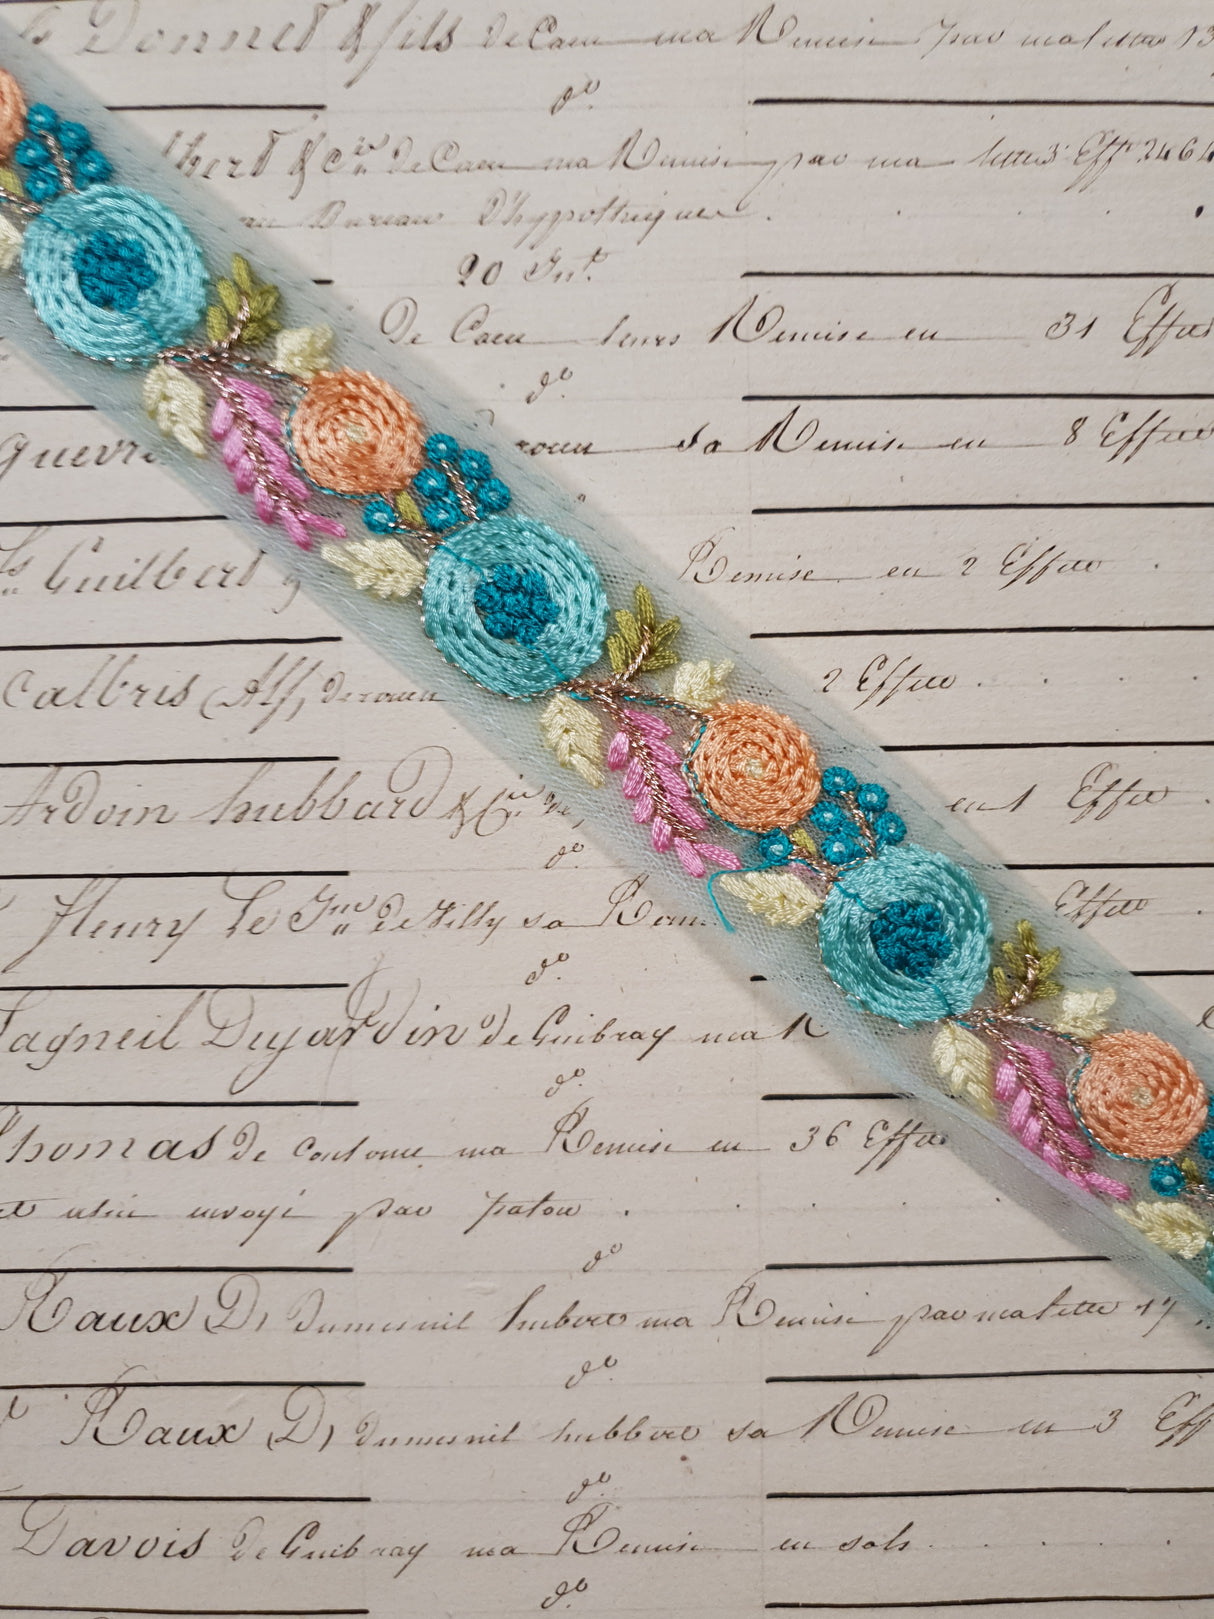 Donnet & fils de Caen ma Remise par ma lettre 13
do.
& Cie de Caen ma Remise par ma lettre 3 Eff 2464
au Bureau D'hypothèques .
20 Jnt.
De Caen leurs Remise en 31 Effets
do.
rouen sa Remise en 8 Effets
Guilbert Remise en 2 Effets .
Calbris (Alf) de rouen 2 Effets .
Ardoin hubbard & Cie de en 1 Effet .
do.
fleury de Tilly sa Rem Effets .
do.
Dujardin de Guibray ma R
do.
Thomas de ma Remise en 36 Effets
envoyé par .
do
Raux D, dumesnil hubert ma Remise par ma lettre 17
do.
Raux D, dumesnil hubbert sa Remise en 3 Eff
do.
Davois de Guibray ma Remise en sols .
do.